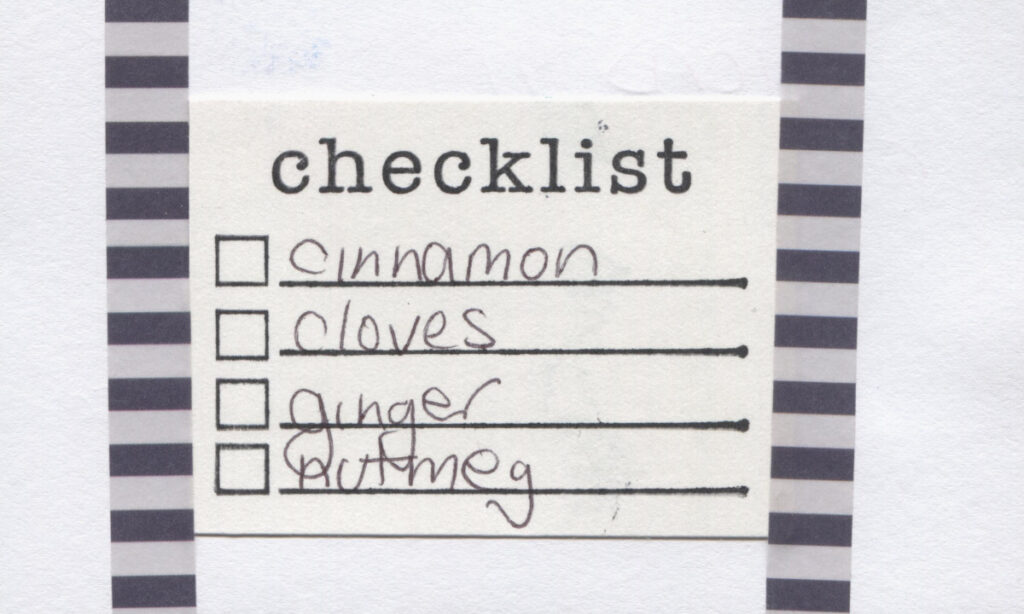 checklist
cinnamon
cloves
ginger
nutmeg